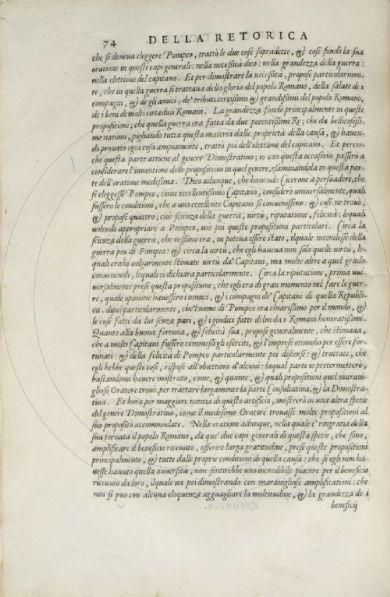 74 DELLA RETORICA
che si doveua eleggere Pompeo, trattò le due cose sopradette, & così fondò la sua
oratione in questi capi generali: nella necessità dico: nella grandezza della guerra:
nella elettione del capitano. Et per dimostrare la necessità, propose particolarmen-
te, che in quella guerra si trattaua della gloria del popolo Romano, della salute de i
compagni, & de gli amici, de' tributi certissimi & grandissimi del popolo Romano,
de i beni di molti cittadini Romani. La grandezza fondò principalmente in queste
propositioni; che quella guerra era fatta da due potentissimi Re; che da bellicosissi-
me nationi, pigliando tutta questa materia dalle proprietà della causa, & hauen-
do prouato ogni cosa ampiamente, trattò poi dell'elettione del capitano. Et percio-
che questa parte attiene al genere Dimostratiuo; io con questa occasione passerò a
considerare l'inuentione delle propositioni in quel genere, esaminandola in questa par-
te dell'oratione medesima. Dico adunque, che hauendo Cicerone a persuadere, che
si eleggesse Pompeo, come eccellentissimo Capitano, considerò uniuersalmente, quali
fussero le conditioni, che a uno eccellente Capitano si conuenissero: & così ne trouò,
& propose quattro; cioè scienza della guerra, uirtù, riputatione, felicità: lequali
uolendo appropriare a Pompeo, usò poi queste propositioni particolari. Circa la
scienza della guerra, che nessuno era, ne poteua essere stato, ilquale intendesse della
guerra più di Pompeo: & circa la uirtù, che egli haueua non solo quelle uirtù, le-
quali erano uolgarmente stimate uirtù da' Capitani, ma molte altre a quel grado
conueneuoli, lequali ei dichiara particolarmente. Circa la riputatione, prima uni-
uersalmente prese questa propositione, che egli era di gran momento nel fare le guer-
re, quale opinione hauessero i nimici, & i compagni de' Capitani di quella Republi-
ca. dipoi particolarmente, che'l nome di Pompeo era chiarissimo per il mondo, &
le cose fatte da lui senza pari, & i giudicij fatti di lui da i Romani honoratissimi.
Quanto alla buona fortuna, & felicità sua, propose generalmente, che stimaua,
che a molti Capitani fussero commessi gli eserciti, & l'imprese etiandio per esser for-
tunati: & della felicità di Pompeo particolarmente poi discorse: & trattate, che
egli hebbe queste cose, rispose all'obiettioni d'alcuni: laqual parte io pretermetterò,
bastandomi hauere mostrato, come, & quante, & quali propositioni quel maraui-
glioso Oratore trouò per trattare largamente la parte Consultatiua, & la Dimostra-
tiua. Et hora per maggiore notitia di questo artificio, mostrerò in una altra spetie
del genere Dimostratiuo, come il medesimo Oratore trouasse molte propositioni al
suo proposito accommodate. Nella oratione adunque, nella quale e' ringratia della
sua tornata il popolo Romano, da que' due capi generali di questa spetie, che sono,
amplificare il beneficio riceuuto, offerire larga gratitudine, prese queste propositioni
principalmente, & tutte dalle proprie conditioni di quella causa: che se egli non ha-
uesse hauuto quella auuersità, non sentirebbe uno incredibile piacere per il beneficio
riceuuto da loro, ilquale ua poi dimostrando con marauigliose amplificationi: che
non si può con alcuna eloquenza agguagliare la moltitudine, & la grandezza de i
beneficij